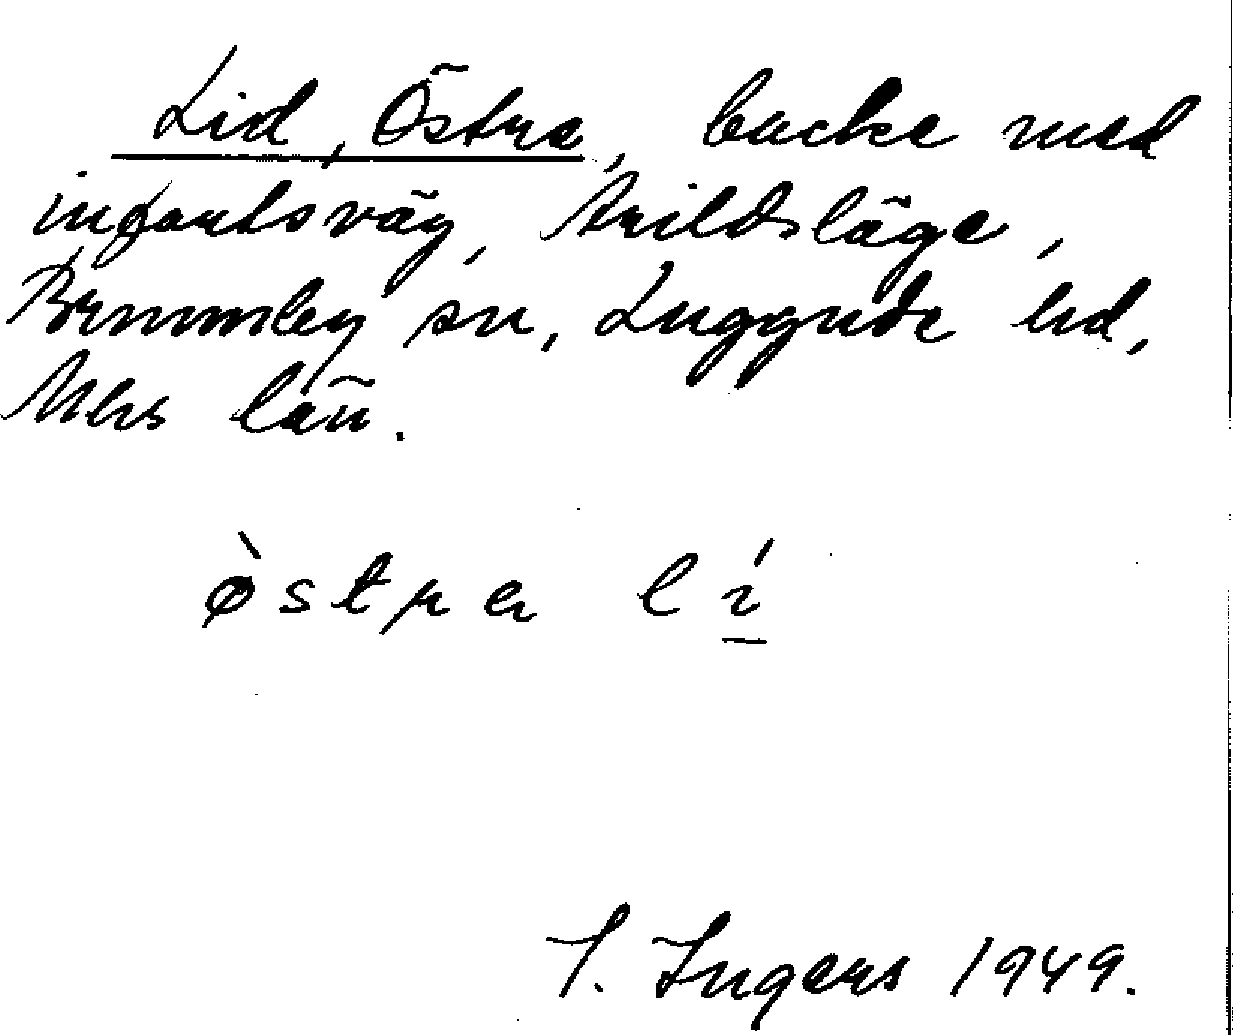 Lid, Östra, backe med
infartsväg, Arildsläge,
Brunnby sn, Luggude hd,
Mhs län.
òstra lí
I. Ingers 1949.